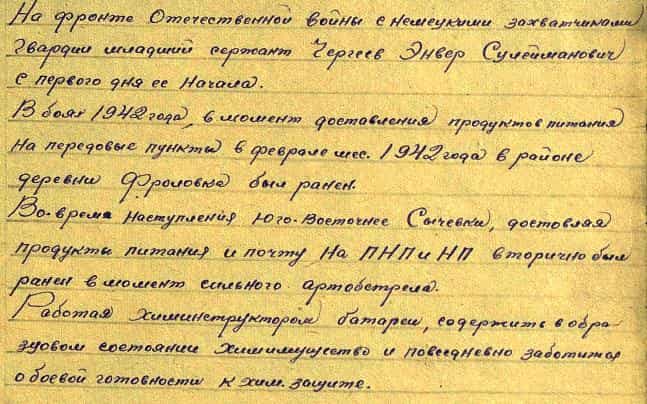 На фронте Отечественной войны с немецкими захватчиками
Гвардии младший сержант Чергеев Энвер Сулейманович
с первого дня ее Начала.
В боях 1942 года, в момент доставления продуктов питания
на передовые пункты в феврале мес. 1942 года в районе
деревни Фроловка был ранен.
Во-время наступления Юго-Восточнее Сычевки, достовляя
продукты питания и почту на ПНП и НП вторично был
ранен в момент сильного артобстрела.
Работая химинструктором батареи, содержить в обра-
зцовом состоянии химимущество и повседневно заботится
о боевой готовности к хим. защите.